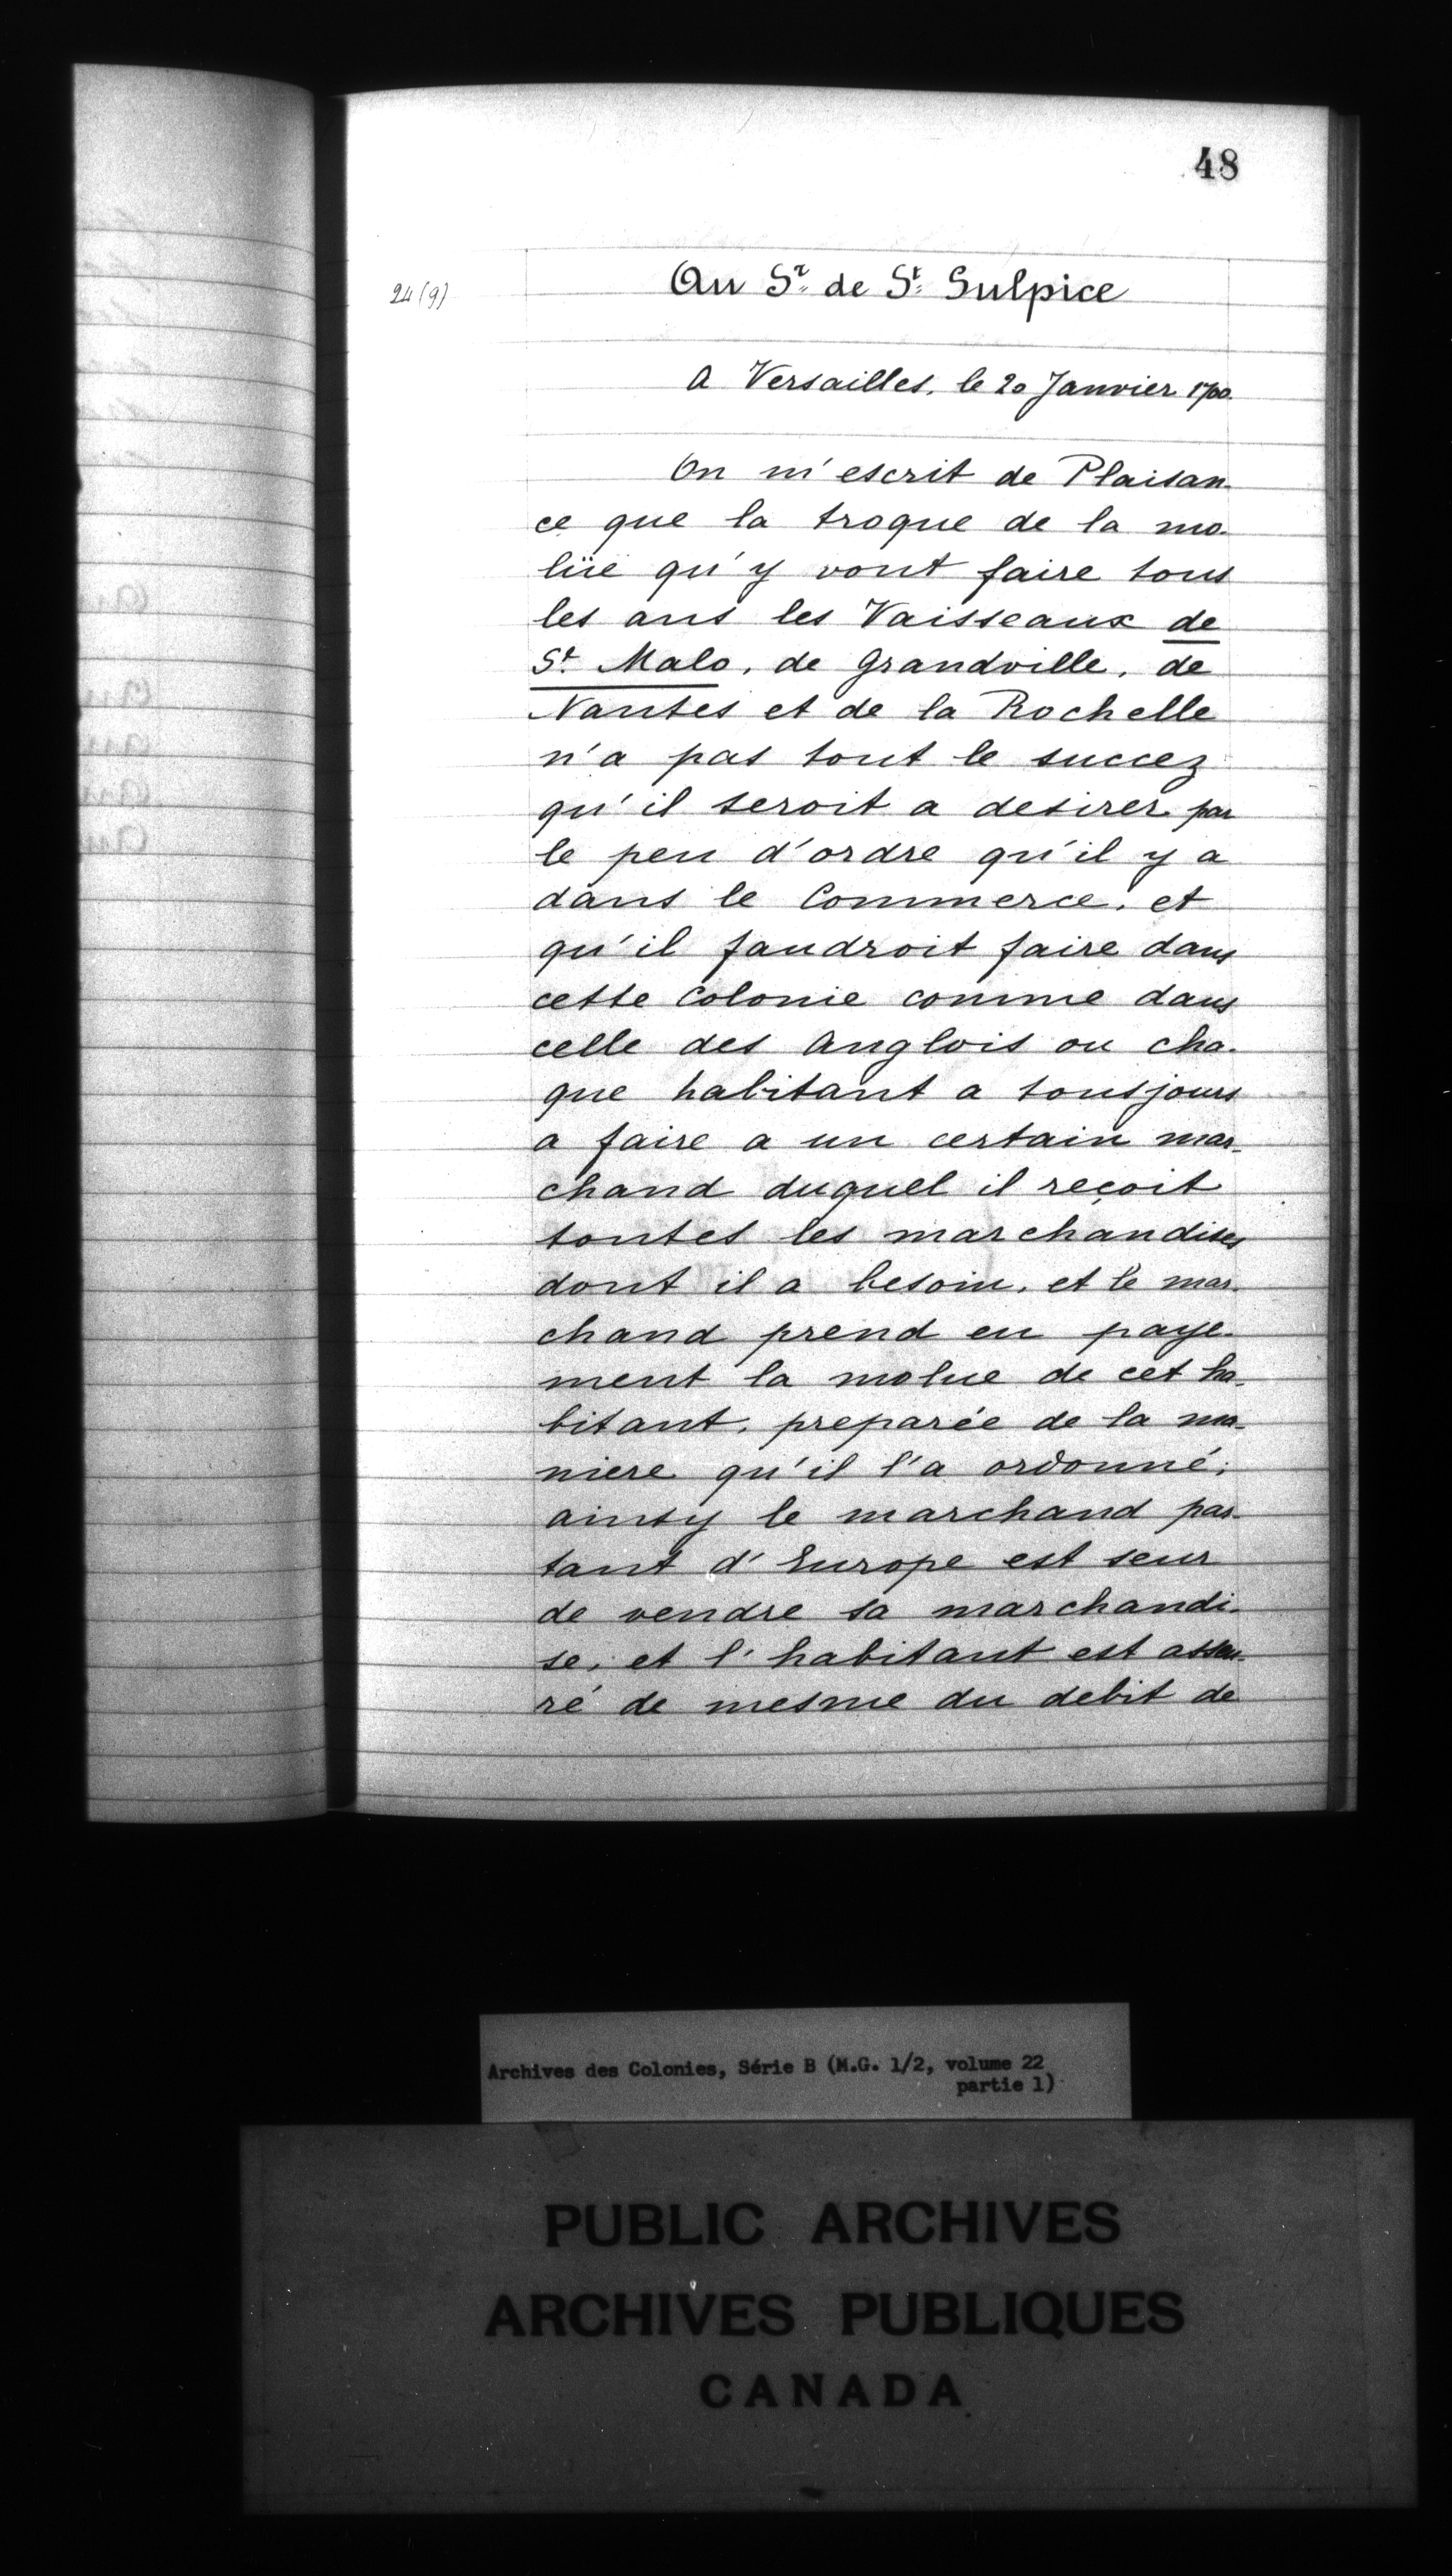 48
24(9)
Au Sr. de St. Sulpice
A Versailles, le 20 Janvier 1700.
On m'escrit de Plaisan-
ce que la troque de la mo-
lüe qu'y vont faire tous
les ans les Vaisseaux de
St. Malo, de Grandville, de
Nantes et de la Rochelle
n'a pas tout le succez
qu'il seroit a desirer par
le peu d'ordre qu'il y a
dans le Commerce, et
qu'il faudroit faire dans
cette Colonie comme dans
celle des Anglois ou cha-
que habitant a tousjours
a faire a un certain mar-
chand duquel il reçoit
toutes les marchandises
dont il a besoin, et le mar-
chand prend en paye-
ment la molue de cet ha-
bitant, preparée de la ma-
niere qu'il l'a ordonné;
ainsy le marchand par-
tant d'Europe est seur
de vendre sa marchandi-
se, et l'habitant est asseu-
ré de mesme du debit de
Archives des Colonies, Série B (M.G. 1/2, volume 22
partie 1)
PUBLIC ARCHIVES
ARCHIVES PUBLIQUES
CANADA